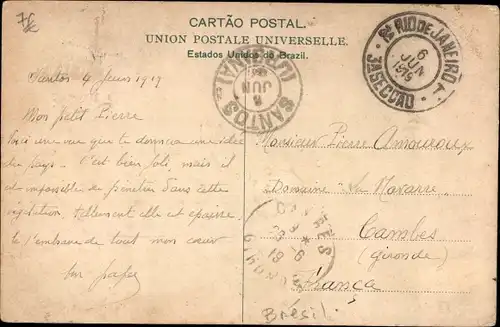 CARTÃO POSTAL.
UNION POSTALE UNIVERSELLE.
Estados Unidos do Brazil.
RIO DE JANEIRO
6
JUN
1919
3ª SECÇÃO
SANTOS
JUN
Santos 4 Juin 1919
Mon petit Pierre
Voici une vue que te donnera une idée
du pays. C'est bien joli, mais il
est impossible de pénétrer dans cette
végétation, tellement elle est épaisse.
Je t'embrasse de tout mon cœur
ton papa
Monsieur Pierre Amouroux
Domaine La Navarre
Cambes
(Gironde)
França
Brésil